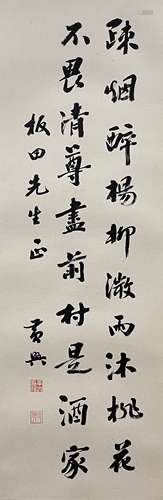 疎烟醉楊柳微雨沐桃花
不畏清尊盡前村是酒家
板田先生正
黄興